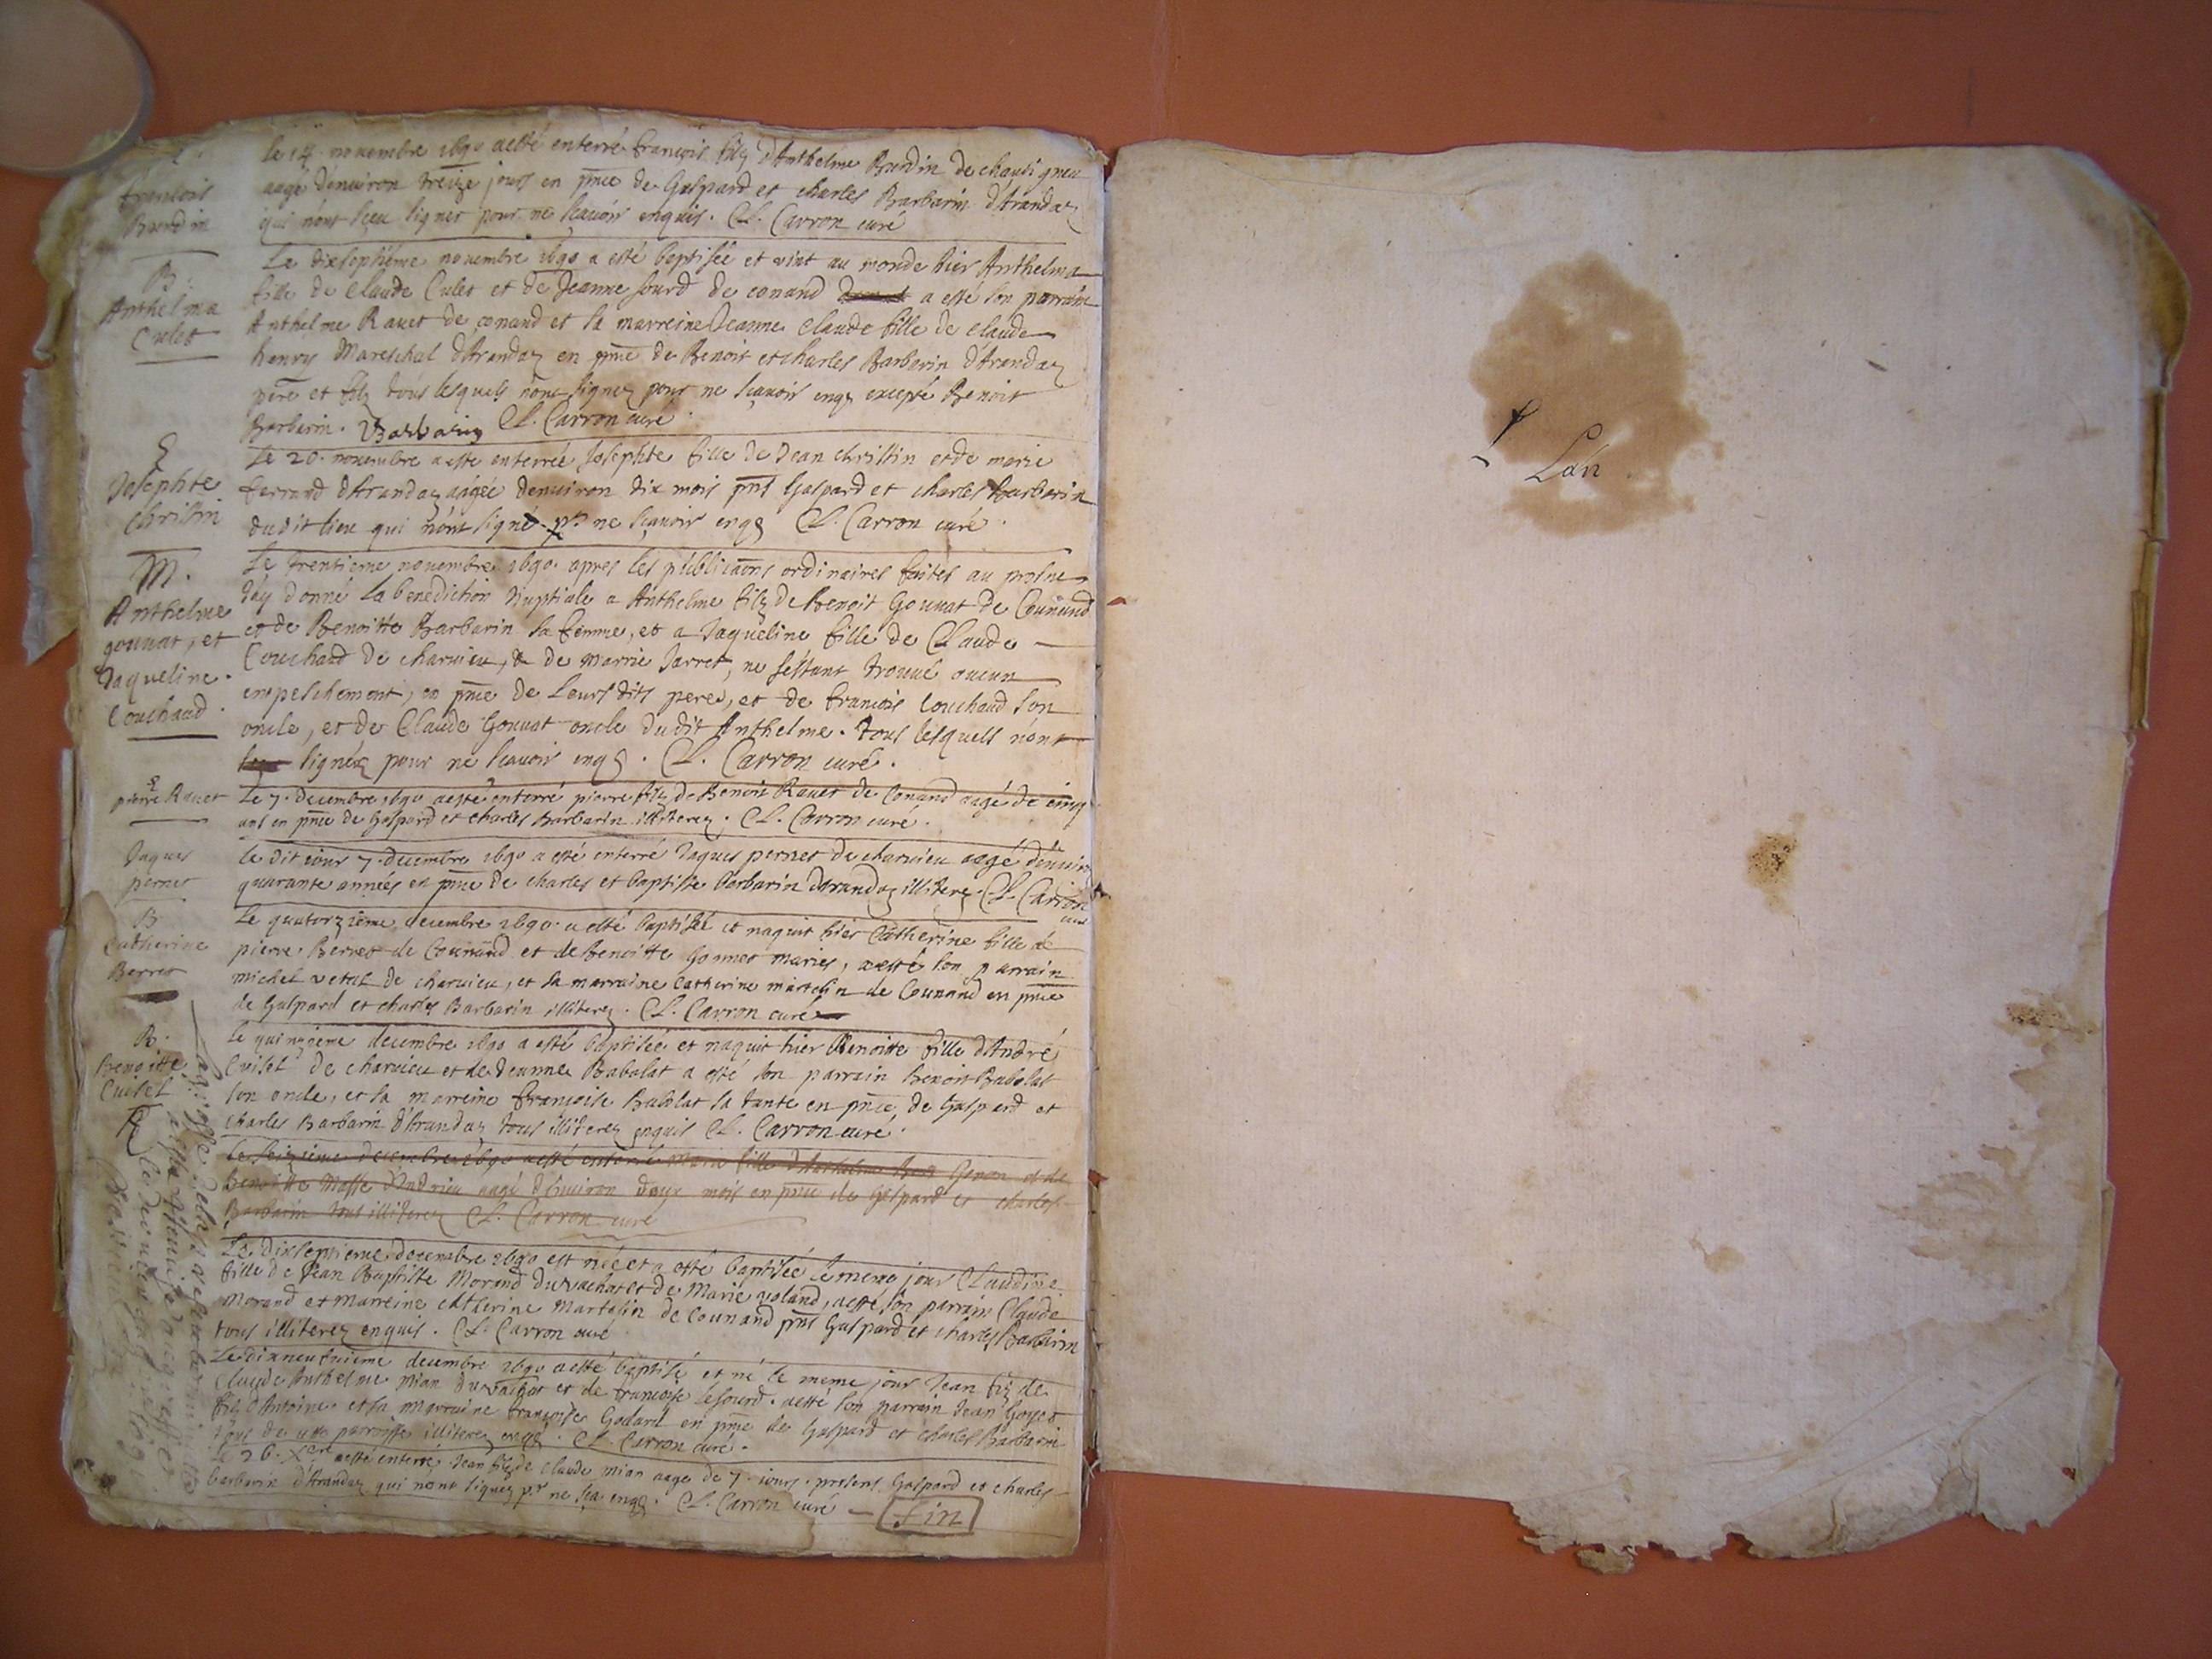 le 14 novembre 1690 a esté enterré françois filz d'Anthelme Burdin de
aagé denviron treize jours en pnce de Gaspard et charles Barbarin d'Arandaz
qui n'ont sceu signer pour ne scavoir enquis. Cl. Carron curé
françois
Burdin
Le dixseptième novembre 1690 a esté baptisée et vint au monde hier Anthelma
fille de Claude Culet et de Jeanne sourd de conand a esté son parrain
Anthelme Ravet de conand et la marreine Jeanne Claude fille de claude
henry Mareschal d'Arandaz en pnce de Benoit et charles Barbarin d'Arandaz
père et filz tous lesquels n'ont signez pour ne scavoir enqs excepté Benoit
Barbarin. Barbarin Cl. Carron curé
B.
Anthelma
Culet
Le 20. novembre a esté enterrée Josephte fille de Jean christin et de marie
ferrand d'Arandaz aagée denviron dix mois pnts Gaspard et charles barbarin
dudit lieu qui n'ont signé pr ne scavoir enqs Cl. Carron curé.
S
Josephte
Christin
Le trentieme novembre 1690. apres les publicaons ordinaires faites au prosne
j'ay donné la benediction Nuptiale a Anthelme filz de benoit Gouvat de Counand
et de Benoitte Barbarin sa femme, et a Jaqueline fille de Claude
Couchaud de charvieu, & de marrie Jarret, ne s'estant trouvé aucun
enpeschement, en pnce de Leurs dits peres, et de francois Couchaud son
oncle, et de Claude Gouvat oncle dudit Anthelme. tous lesquels n'ont
signéz pour ne scavoir enqs. Cl. Carron curé.
M.
Anthelme
gouvat, et
Jaqueline
Couchaud.
Le 7. decembre 1690 a esté enterré pierre filz de Benoit Ravet de Conand aagé de cinq
ans en pnce de Gaspard et charles Barbarin illiterez. Cl. Carron curé.
S
pierre Ravet
le dit jour 7. decembre 1690 a esté enterré Jaques pernet de charvieu aagé denviron
quarante années en pnce de charles et baptiste barbarin d'arandaz illiterez. Cl. Carron
curé
Jaques
pernet
Le quatorzième decembre 1690. a esté baptisée et naquit hier Catherine fille de
pierre Berret de Counand et de benoitte Gonnet mariés, a esté son parrain
michel vetal de charvieu, et la marraine Catherine martelin de Counand en pnce
de Gaspard et charles Barbarin illiterez. Cl. Carron curé
B
Catherine
Berret
Le quinzième decembre 1690 a esté baptisée et naquit hier Benoitte fille d'André
Cuisel de charvieu et de Jeanne Babolat a esté son parrain benoit Babolat
son oncle, et la marreine françoise Babolat sa tante en pnce, de Gaspard et
charles Barbarin d'Arandaz tous illiterez enquis Cl. Carron curé.
B.
Benoitte
Cuisel
Le seizieme decembre 1690 a esté enterré Marie fille d'Anthelme Genon et de
Benoitte Masse aagé denviron mois en pnce de Gaspard et charles
Barbarin tous illiterez Cl. Carron curé
Le dixseptieme decembre 1690 est née et a esté baptisée le meme jour Claudine
fille de Jean Baptiste Morand du vachat et de Marie voland, a esté son parrain Claude
Morand et marreine catherine Martelin de Counand pnts Gaspard et charles Barbarin
tous illiterez enquis. Cl. Carron curé
Le dixneufvieme decembre 1690 a esté baptisé et né le meme jour Jean filz de
Claude Anthelme Mian du vachat et de francoise lesourd. a esté son parrain Jean Goyet
filz d'Antoine. et la marraine françoise Godard en pnce de Gaspard et charles Barbarin
tous de parroisse illiterez enqs. Cl. Carron curé.
Le 26. Xbre a esté enterré Jean filz de claude mian aage de 7. jours. presens Gaspard et charles
barbarin d'Arandaz qui n'ont signez pr ne sca enqs. Cl. Carron curé — fin
L'an